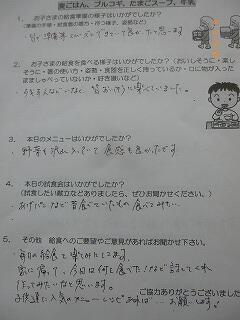 麦ごはん、プルコギ、たまごスープ、牛乳
1. お子さまの給食準備の様子はいかがでしたか？
(準備の手順・給食着の着方・持つ子、姿勢など)
2. お子さまの給食を食べる様子はいかがでしたか？（おいしそうに・楽し
そうに・箸の使い方・姿勢・食器を正しく持っているか・口に物が入った
ままはしゃべっていないか・好き嫌いなど）
3. 本日のメニューはいかがでしたか？
・野菜も沢山入っていて食感も良かったです。
4. 本日の試食会はいかがでしたか？
(試食したい献立などありましたら、ぜひお聞かせください。)
・あげパンなど昔食べていたもの食べてみたい。
5. その他 給食へのご要望やご意見があればお聞かせ下さい。
・毎日の給食を楽しみにしてます。
家に帰って、今日は何と食べた！など話してくれ
作ってみたいなと思います。
ご協力ありがとうございました
子供達に人気のメニューレシピあれば… お願いします。